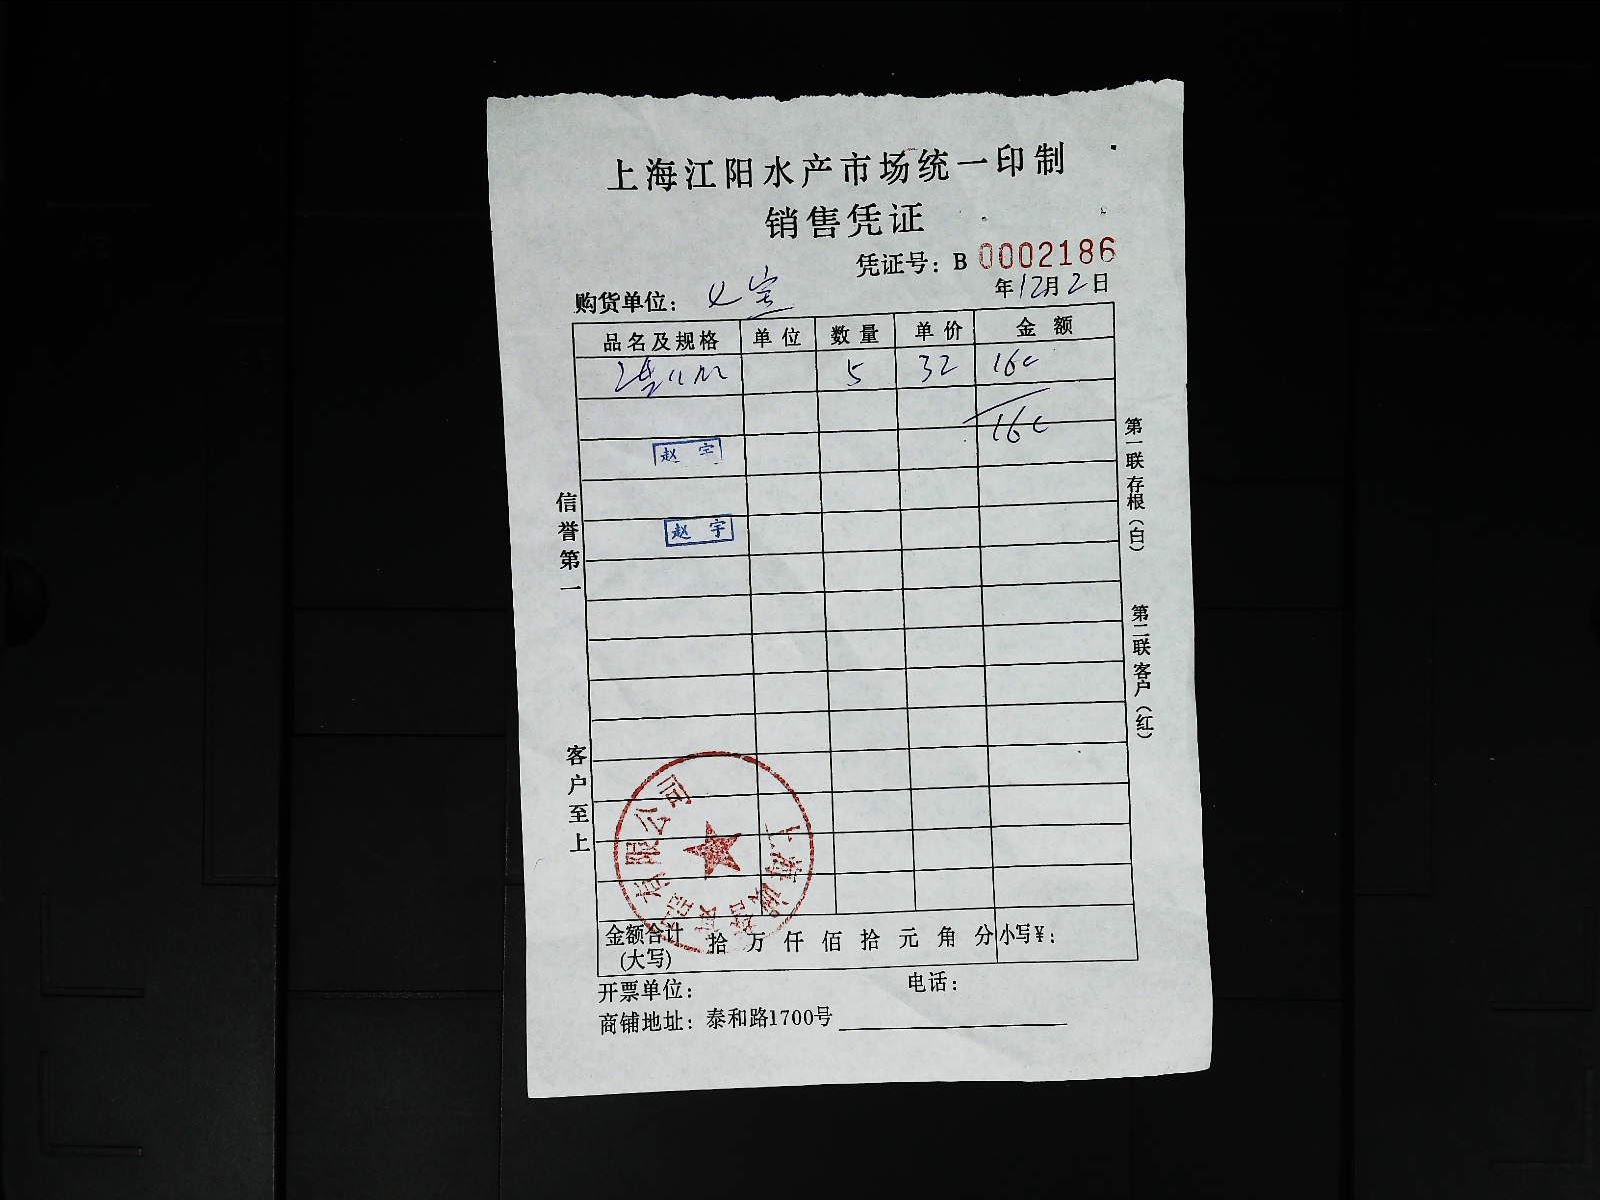 上海江阳水产市场统一印制
销售凭证
凭证号：B 0002186
年12月2日
购货单位：
品名及规格 单位 数量 单价 金额
5 32 160
160
赵 宇
赵 宇
信誉第一
客户至上
第一联存根（白）
第二联客户（红）
有限公司
上海
金额合计(大写) 拾 万 仟 佰 拾 元 角 分 小写¥：
开票单位： 电话：
商铺地址：泰和路1700号